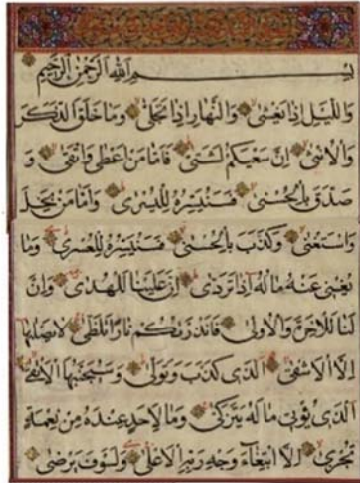 بسم الله الرحمن الرحيم
والليل اذا يغشى والنهار اذا تجلى وما خلق الذكر
والانثى ان سعيكم لشتى فاما من اعطى واتقى و
صدق بالحسنى فسنيسره لليسرى واما من بخل
واستغنى وكذب بالحسنى فسنيسره للعسرى وما
يغنى عنه ماله اذا تردى ان علينا للهدى وان
لنا للاخرة والاولى فانذرتكم نارا تلظى لا يصليها
الا الاشقى الذى كذب وتولى وسيجنبها الاتقى
الذى يؤتى ماله يتزكى وما لاحد عنده من نعمة
تجزى الا ابتغاء وجه ربه الاعلى ولسوف يرضى